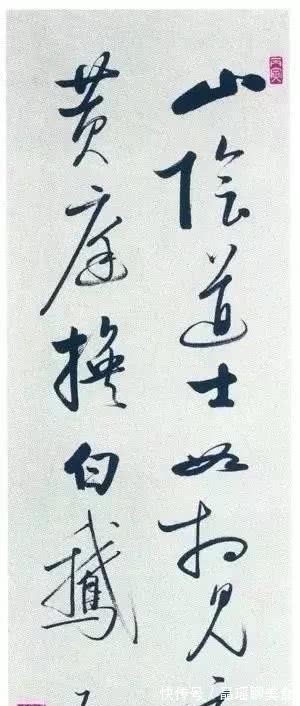 山陰道士如相見
黃庭換白鵝
快传号